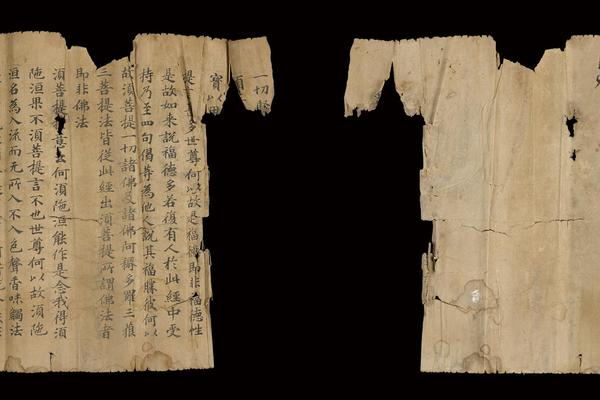 一切賢
須
寶以用
提多世尊何以故是福德即非福德性
是故如來說福德多若復有人於此經中受
持乃至四句偈等為他人說其福勝彼何以
故須菩提一切諸佛及諸佛阿耨多羅三藐
三菩提法皆從此經出須菩提所謂佛法者
即非佛法
須菩提意云何須陁洹能作是念我得須
陁洹果不須菩提言不也世尊何以故須陁
洹名為入流而无所入不入色聲香味觸法